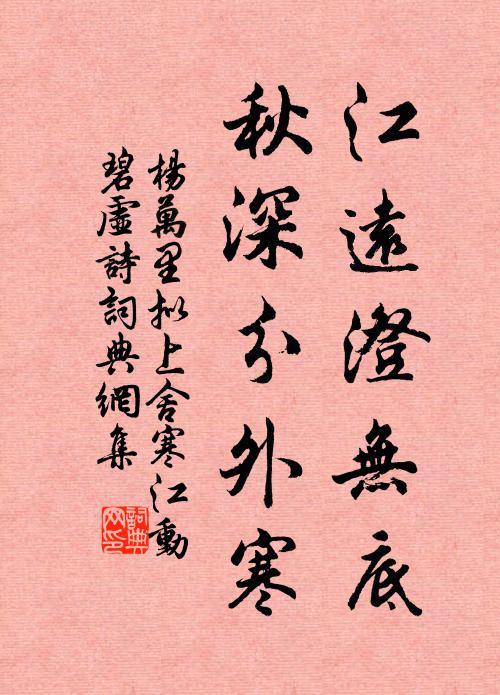 江遠澄無底
秋深分外寒
楊萬里擬上舍寒江動
碧虛詩詞典網集
詞典
网印